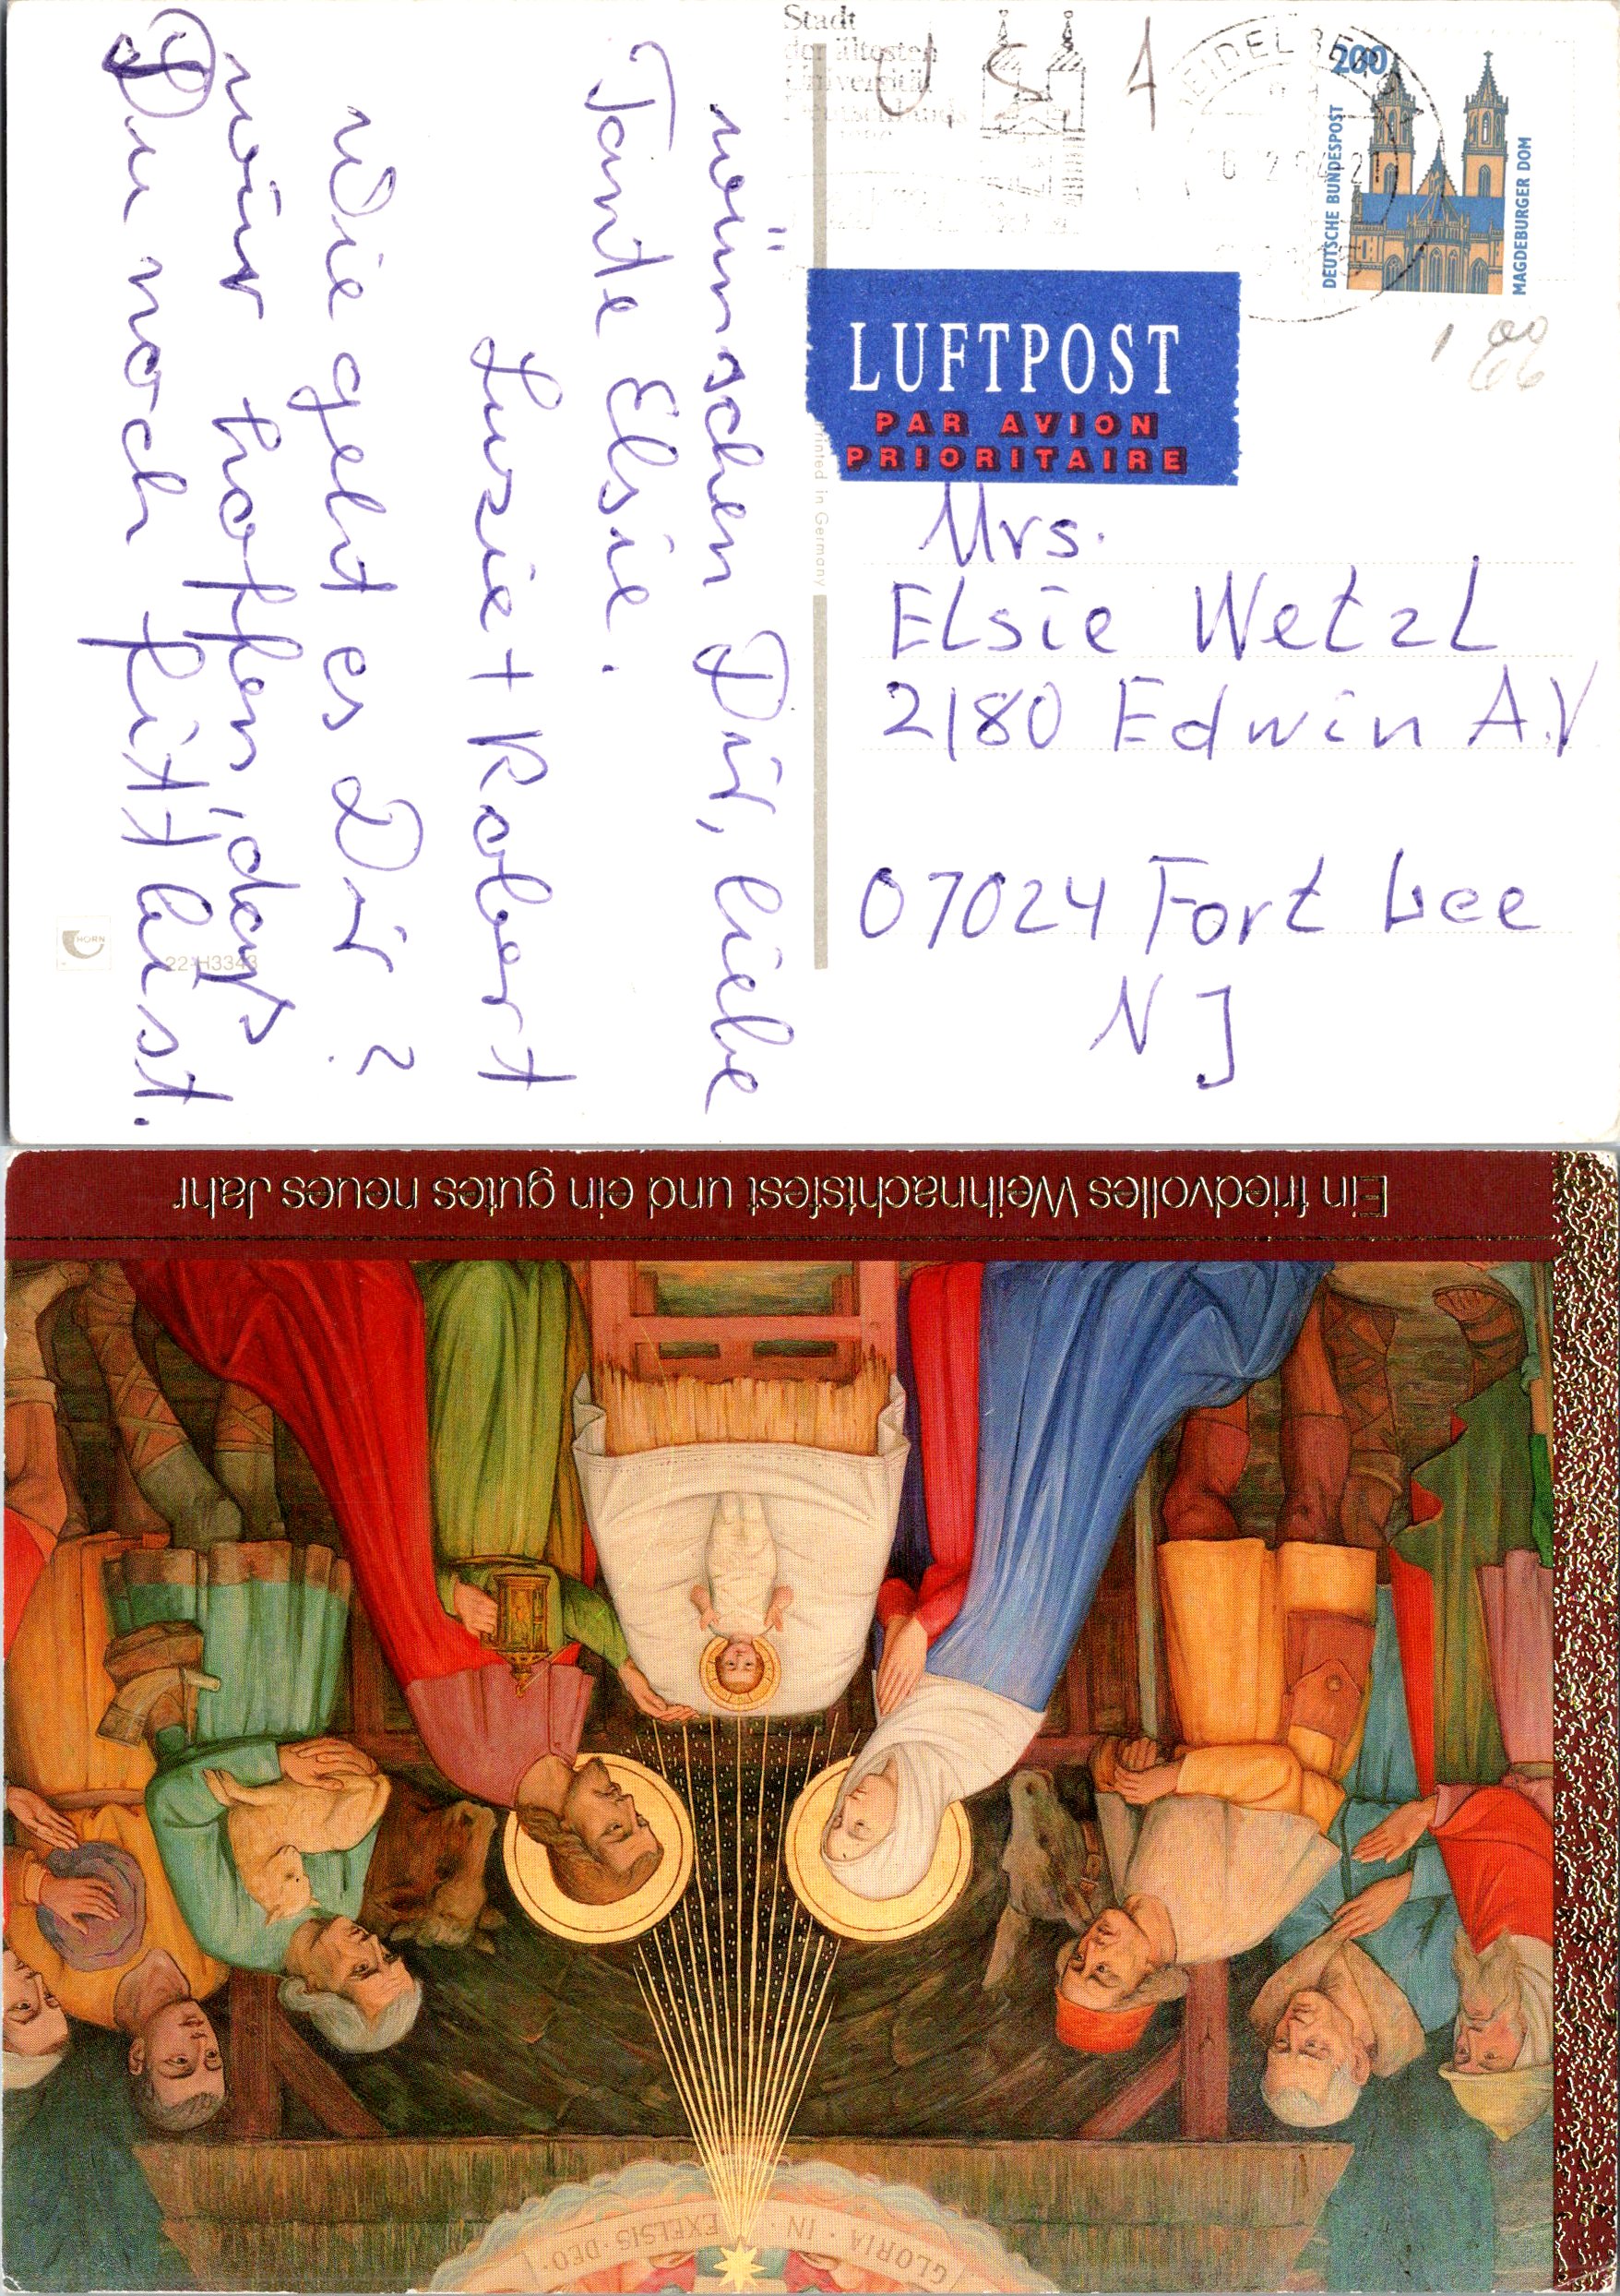 Stadt
der ältesten
Universität
Deutschlands
U S A
HEIDELBERG
200
DEUTSCHE BUNDESPOST
MAGDEBURGER DOM
LUFTPOST
PAR AVION
PRIORITAIRE
1 00
66
wünschen Dir, liebe
Tante Elsie.
Luzie + Robert
Wie geht es Dir?
wir hoffen, daß
Du noch fitt bist.
Printed in Germany
HORN
22-H3343
Mrs.
Elsie Wetzl
2180 Edwin A.V
07024 Fort Lee
N J
Ein friedvolles Weihnachtsfest und ein gutes neues Jahr
GLORIA · IN · EXELSIS · DEO ·